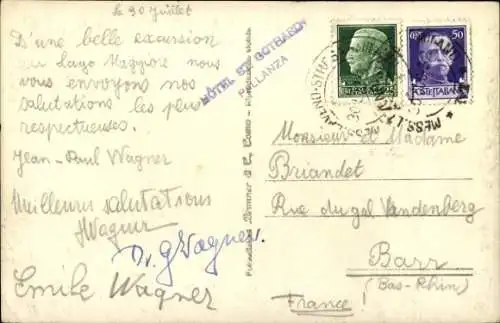 le 30 Juillet
D'une belle excursion
au lago Maggiore nous
vous envoyons nos
salutations les plus
respectueuses.
Jean-Paul Wagner
Meilleures salutations
HWagner
Dr. GWagner.
Emile Wagner
HÔTEL ST. GOTTARDO
PALLANZA
50
POSTE ITALIANE
MESS.
Monsieur et Madame
Briandet
Rue du gal Vandenberg
Barr
(Bas-Rhin)
France